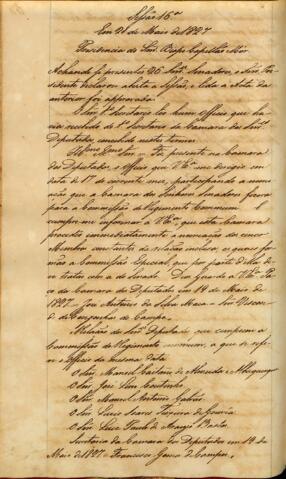 Sessão 16ª
Em 21 de Maio de 1827
Presidencia do Snr. Bispo Capellão Mór
Achando-se presentes 26 Snrs. Senadores, o Snr. Pre-
sidente declarou aberta a Sessão, e lida a Acta da
anterior foi approvada.
O Snr. 1º Secretario leo hum Officio que ha-
via recebido do 1º Secretario da Camara dos Snrs.
Deputados, concebido nestes termos.
Illmo. e Exmo. Snr. - Foi presente na Camara
dos Deputados o Officio que V. Exª. me dirigio em
data de 17 do corrente mez, participando a nomea-
ção que a Camara dos Senadores fizera
para a Commissão de Regimento Commum. E
cumpre-me informar a V. Exª. que esta Camara
procedeo immediatamente á nomeação de cinco
Membros constantes da relação inclusa, os quaes for-
mão a Commissão Especial, que por parte della de-
ve tratar com a do Senado. Deos Guarde a V. Exª. Pa-
ço da Camara dos Deputados em 19 de Maio de
1827 - José Antonio da Silva Maia - Snr. Viscon-
de de Congonhas do Campo.
Relação dos Snrs. Deputados, que compoem a
Commissão de Regimento commum, a que se refe-
re o Officio da mesma data
O Snr. Manoel Caetano de Almeida e Albuquerque
O Snr. José Lino Coutinho
O Snr. Manoel Antonio Galvão
O Snr. Lucio Soares Teixeira de Gouvêa
O Snr. Luiz Paulo de Araujo Basto
Secretaria da Camara dos Deputados em 19 de
Maio de 1827 - Francisco Gomes de Campos.